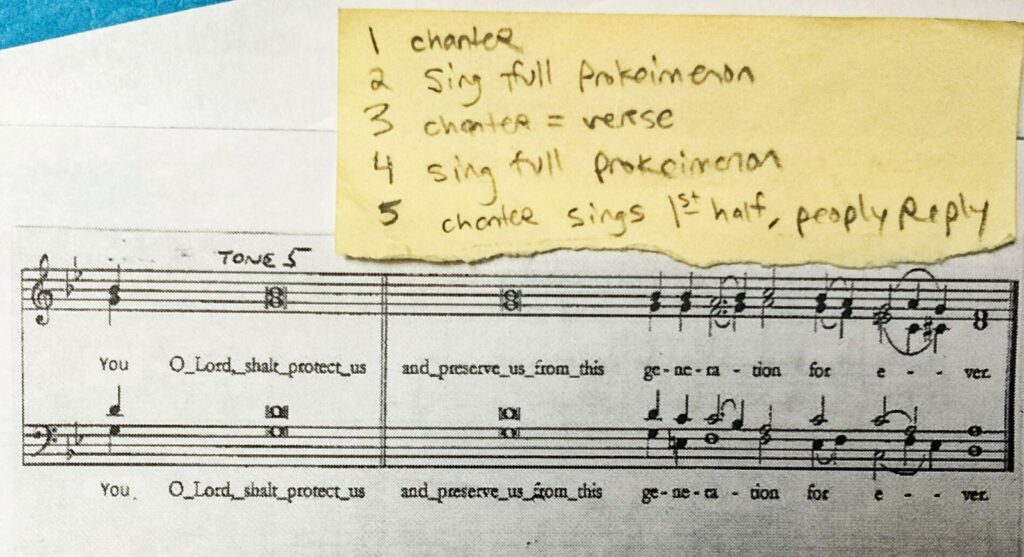 1 chanter
2 Sing full Prokeimenon
3 chanter = verse
4 sing full prokeimenon
5 chanter sings 1st half, peoply Reply
TONE 5
You O_Lord,_shalt_protect_us and_preserve_us_from_this ge-ne-ra - tion for e - - ver.
You, O_Lord,_shalt_protect_us and_preserve_us_from_this ge-ne-ra - tion for e - - ver.